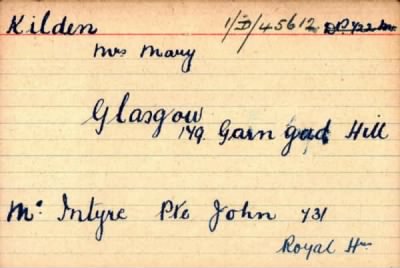 Kilden 1/D/45612
Mrs Mary
Glasgow
179. Garn gad Hill
Mc Intyre Pte John 731
Royal Hrs